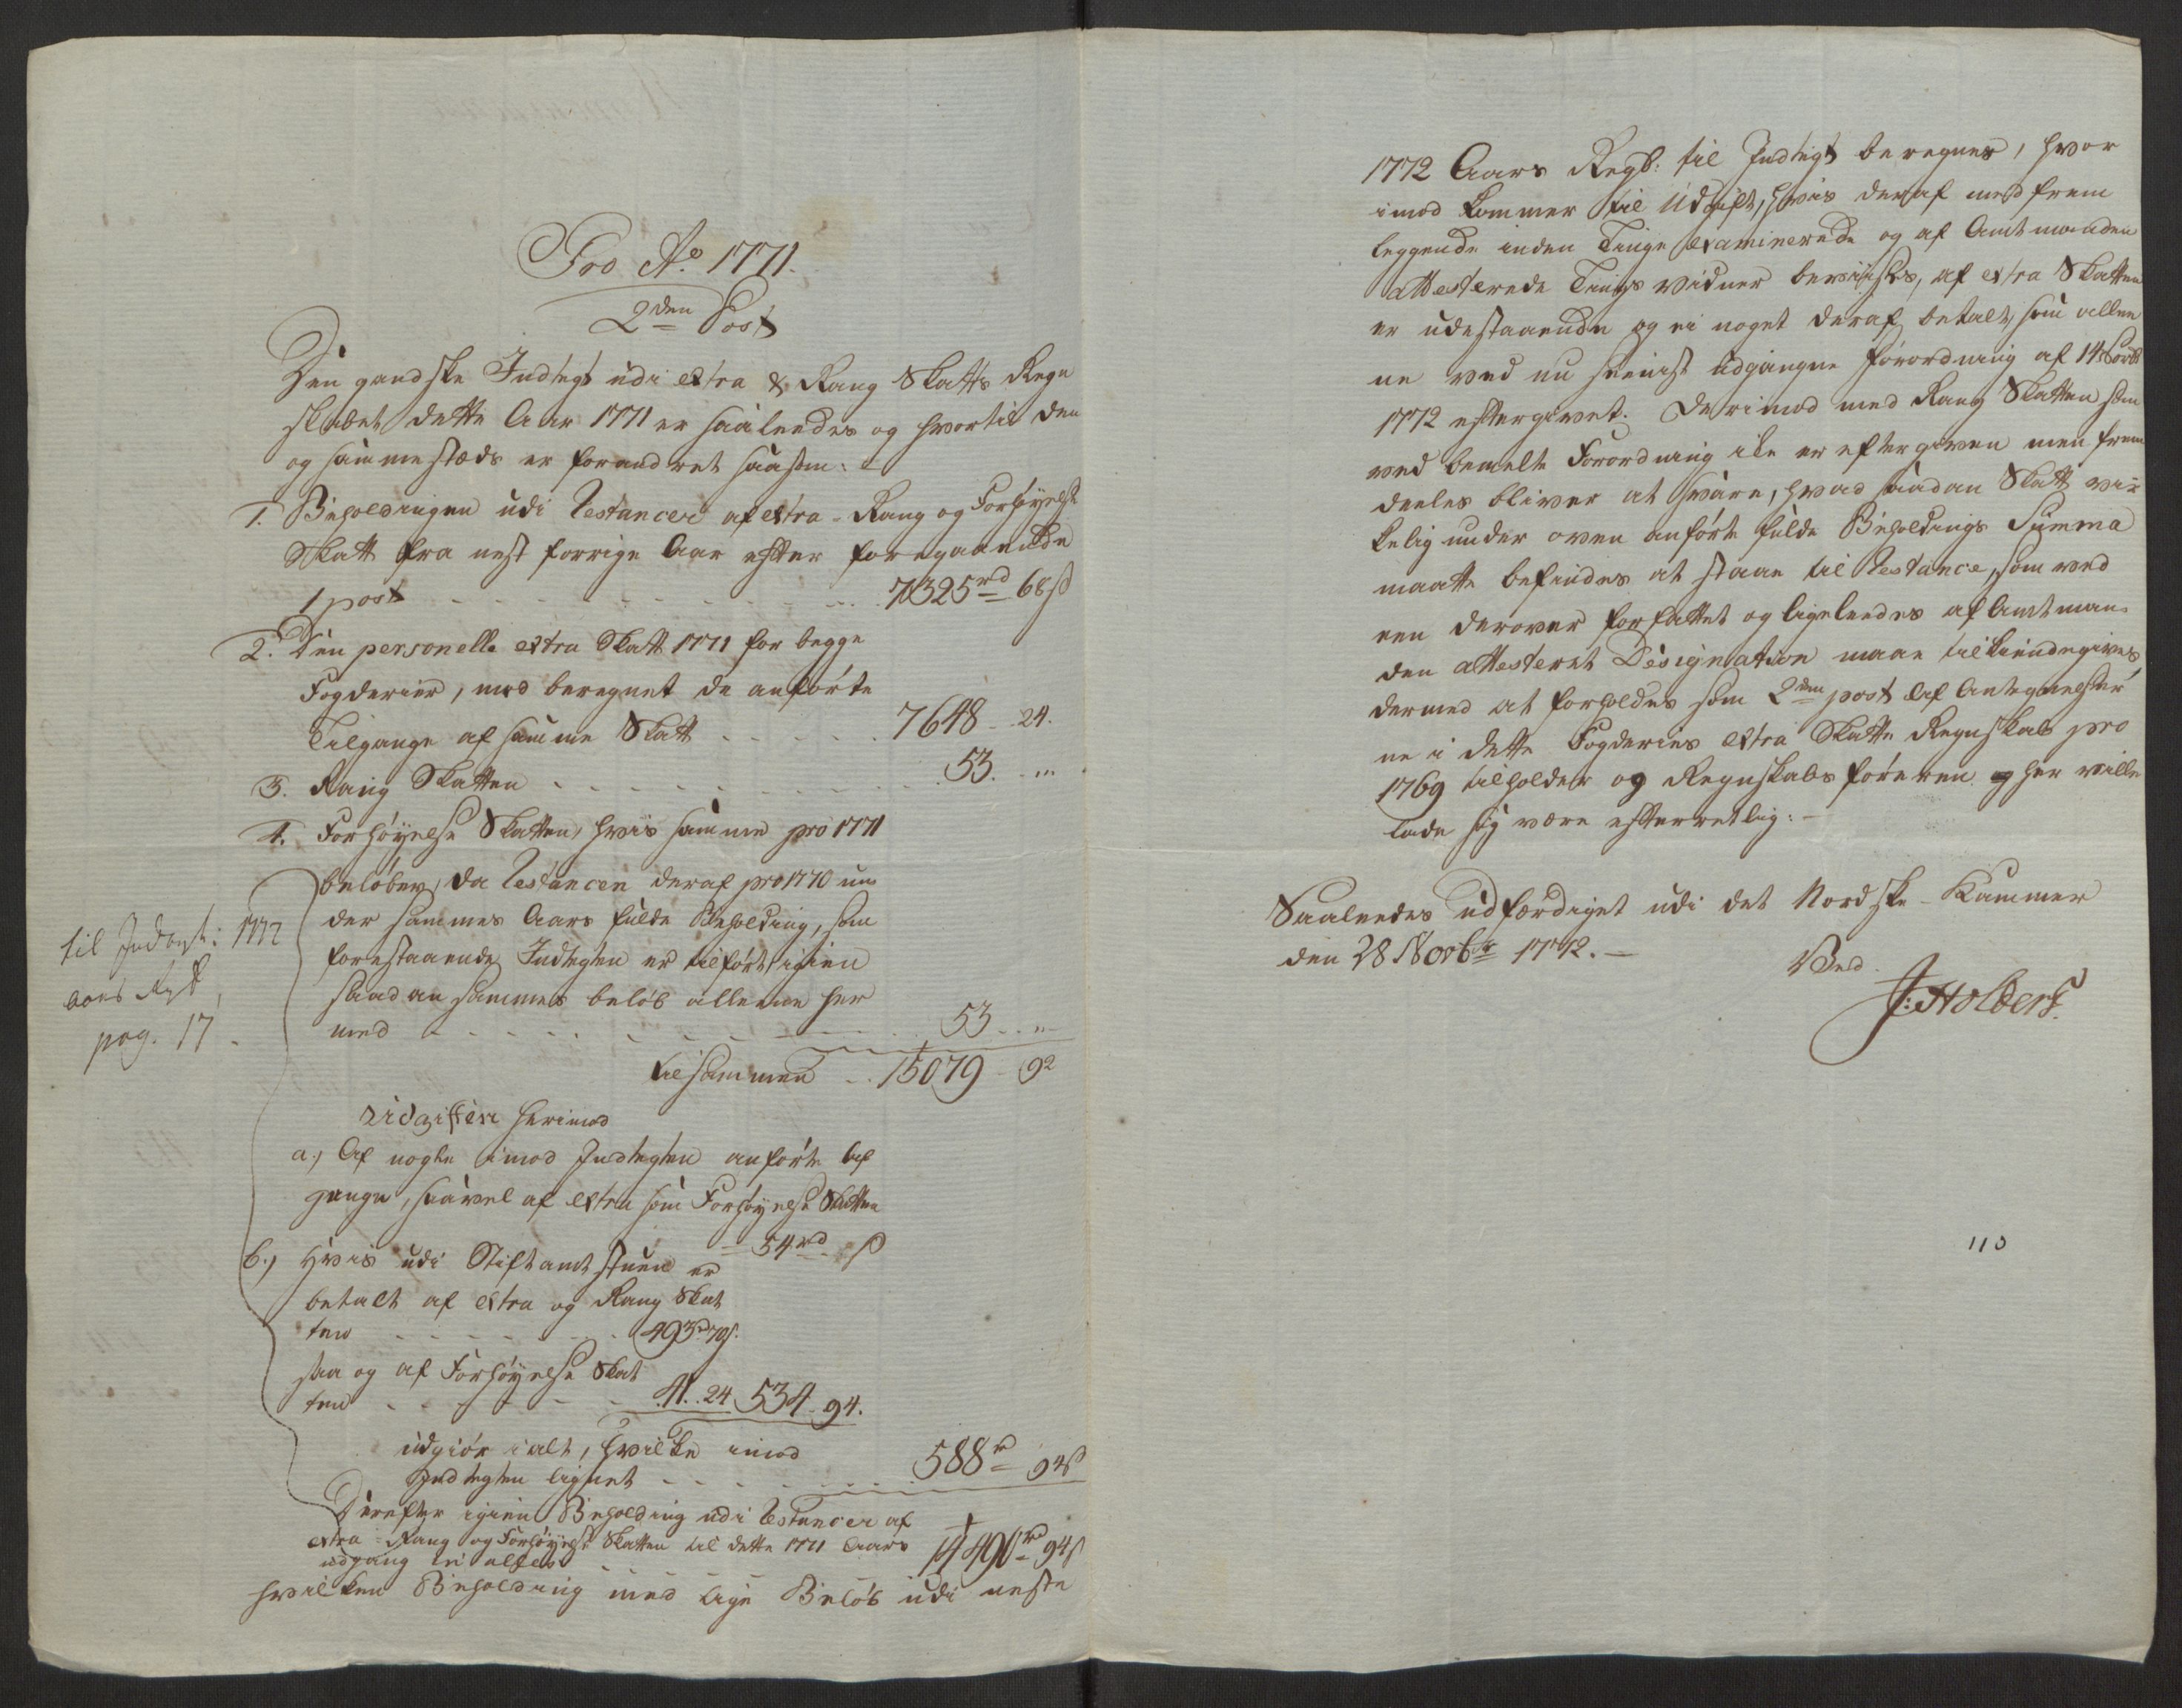 Pro Ao. 1771.
2den Post
Den gandske Indtegt udi extra & Rang Skatts Regn
skabet dette Aar 1771 er saaleedes og hvortil den
og sammestæds er forandret saasom:
1. Beholdingen udi Restancer af extra-Rang og Forhøyelse
Skatt fra nest forrige Aar efter foregaaende
1 post - - - - - - 7325rd 68s
2. Den personelle extra Skatt 1771 for begge
Fogderier, med beregnet de anførte
Tilgange af samme Skatt - - - - - 7648 - 24.
3. Rang Skatten - - - - - - 53. - "
4. Forhøyelse Skatten, hvis samme pro 1771
beløber, da Restancen deraf pro 1770 un
der sammes Aars fulde Beholding, som
forestaaende Indtegten er tilført igien
saadan sammes beløb alleene her
med - - - - - - - 53 - "
til Indtegt: 1772
Aars Regsk
pag. 17
tilsammen - 15079 - 92
Udgiften herimod
a.) Af nogle imod Indtegten anførte Af
gange, saavel af extra som Forhøyelse Skatten
- 54rd s
b.) Hvis udi Stiftamtstuen er
betalt af extra og Rang Skat
ten - - - - - 493rd 70s.
saa og af Forhøyelse Skat
ten - - - - - 41. 24 534 - 94.
udgiør i alt, hvilke imod
Indtegten lignet - - - - - 588rd 94s
Derefter igien Beholding udi Restancer af
extra-Rang og Forhøyelse Skatten til dette 1771 Aars
udgang er alt - - - 14490rd 94s
hvilken Beholdning med lige Beløb udi neste
1772 Aars Regsb: til Indtegt beregnes, hvor
imod kommer til Udgift, hvis deraf med frem
leggende inden Tinge examinerede og af Amtmanden
attesterede Tings vidner beviises, af extra Skatten
er udestaaende og ei noget deraf betalt, som alleene
ne ved nu seenist udgangne Forordning af 14 Novbr
1772 eftergivet. Derimod med Rang Skatten som
ved bemelte Forordning ike er eftergiven men frem
deeles bliver at svare, hvad saadan Skatt vir
kelig under oven anførte fulde Beholdings Summa
maatte befindes at staae til Restance, som ved
een derover forfattet og ligeleedes af Amtman
den attesteret Designation maae tilkiendegives,
dermed at forholdes som 2den post af Antegnelser
ne i dette Fogderies extra Skatte Regnskab pro
1769 tilholder og Regnskabsføreren og her ville
lade sig være efterretlig: -
Saaleedes udfærdiget udi det Nordske-Kammer
den 28 Novbr 1772. -
Ved
J: Holbert.
113